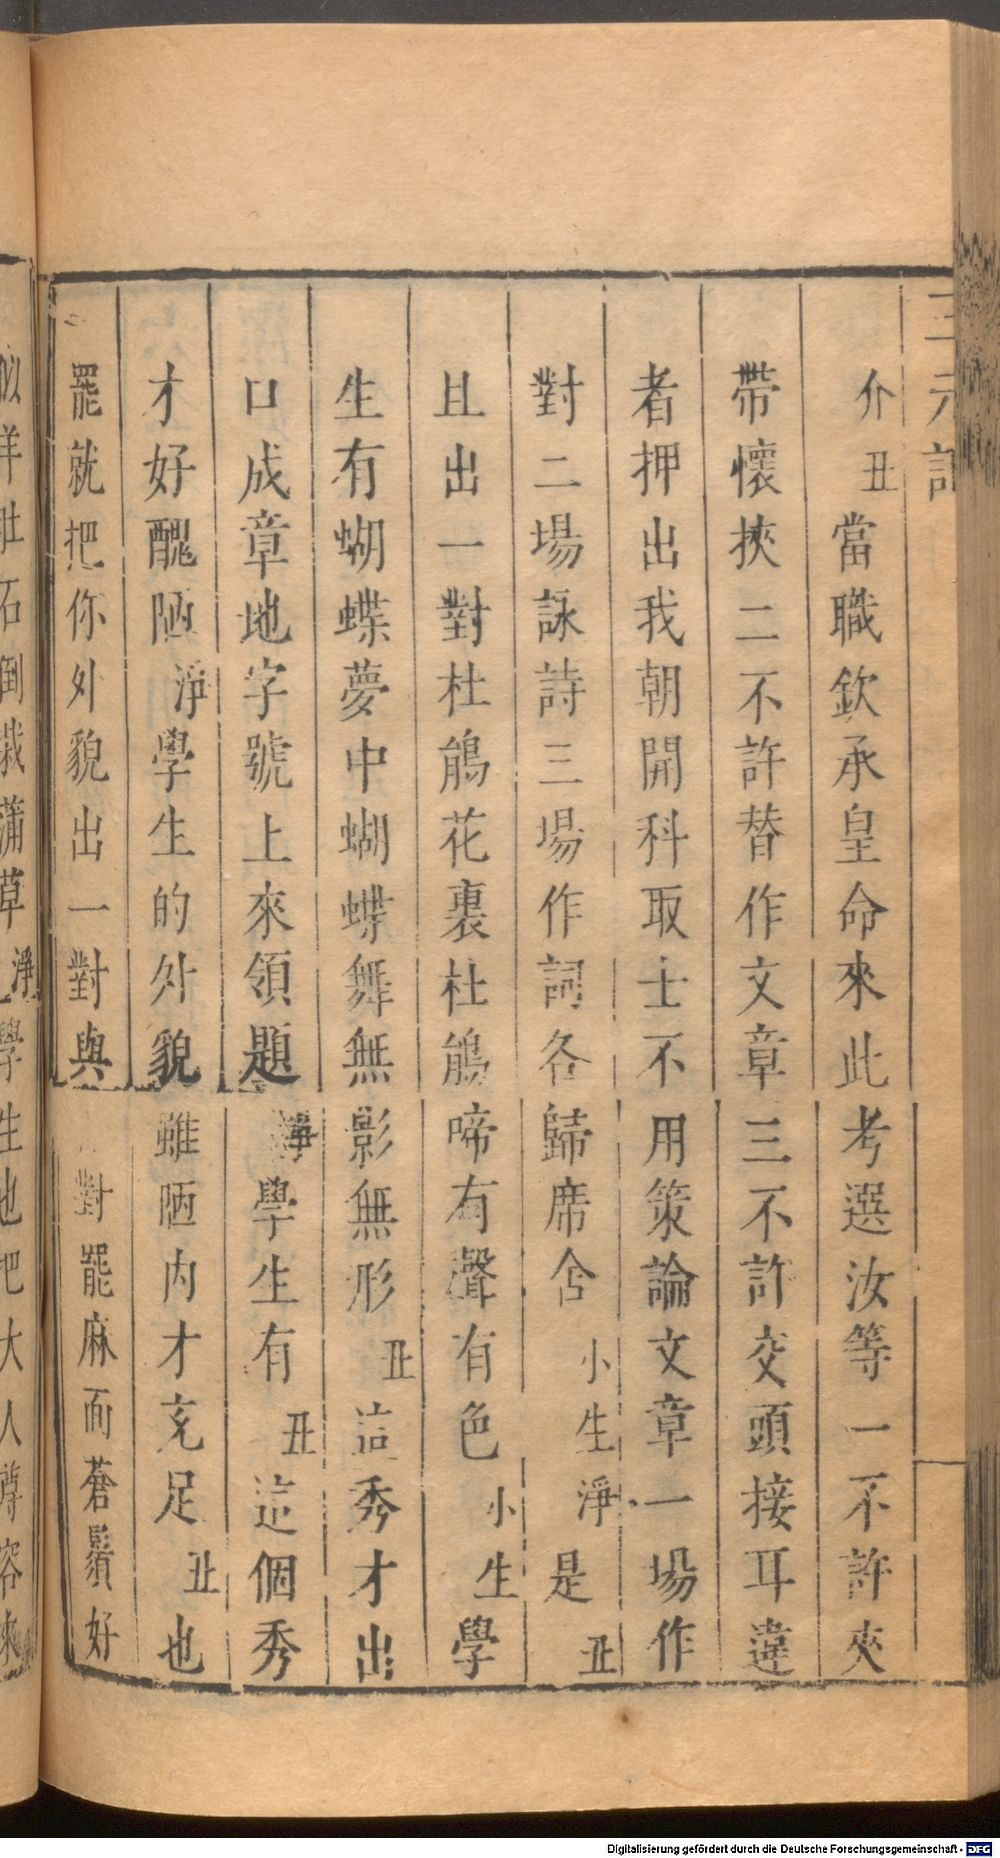 三元記
介丑當職欽承皇命來此考選汝等一不許夾
帶懷挾二不許替作文章三不許交頭接耳違
者押出我朝開科取士不用策論文章一場作
對二場詠詩三場作詞各歸席兮小生淨是丑
且出一對杜鵑花裏杜鵑啼有聲有色小生學
生有蝴蝶夢中蝴蝶舞無影無形丑這秀才出
口成章地字號上來領題淨學生有丑這個秀
才好醜陋淨學生的外貌雖陋內才充足丑也
罷就把你外貌出一對與對罷麻面蒼鬚好
羊肚石倒栽蒲草淨學生也把大人尊容來
Digitalisierung gefördert durch die Deutsche Forschungsgemeinschaft - DFG